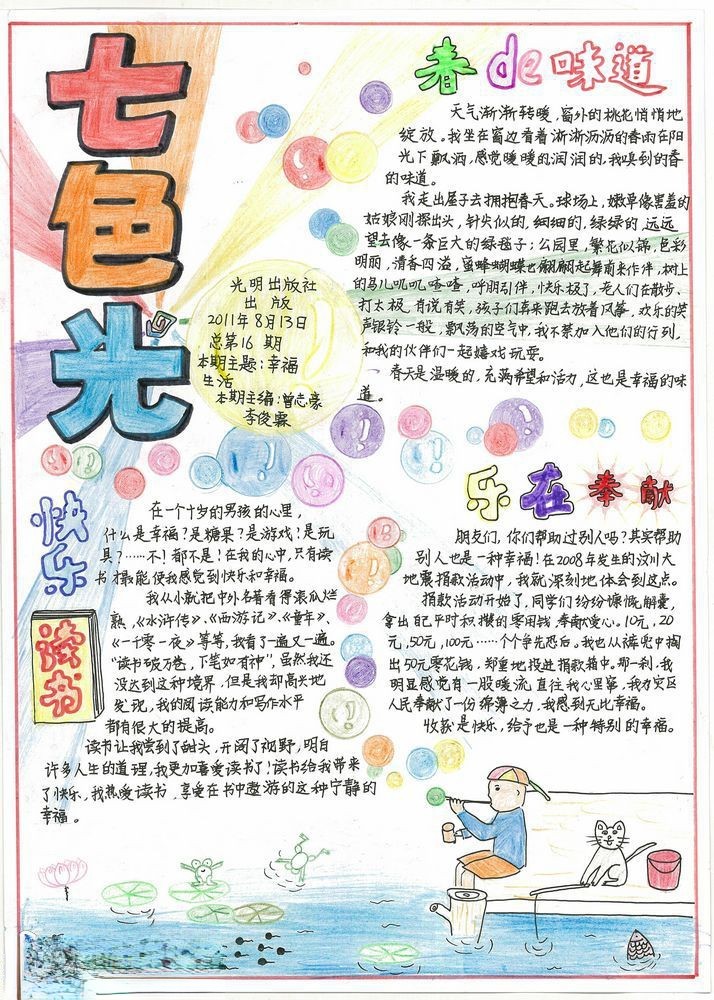 七色光
光明出版社
出 版
2011年8月13日
总第16 期
本期主题：幸福
生活
本期主编：曾志豪
李俊霖
春de味道
天气渐渐转暖，窗外的桃花悄悄地
绽放。我坐在窗边看着淅淅沥沥的春雨在阳
光下飘洒，感觉暖暖的润润的，我嗅到的春
的味道。
我走出屋子去拥抱春天。球场上，嫩草像害羞的
姑娘刚探出头，针尖似的，细细的，绿绿的，远远
望去像一条巨大的绿毯子；公园里，繁花似锦，色彩
明丽，清香四溢，蜜蜂蝴蝶也翩翩起舞前来作伴，树上
的鸟儿叽叽喳喳，呼朋引伴，快乐极了，老人们在散步、
打太极，有说有笑，孩子们喜来跑去放着风筝，欢乐的笑
声银铃一般，飘荡的空气中，我不禁加入他们的行列，
和我的伙伴们一起嬉戏玩耍。
春天是温暖的，充满希望和活力，这也是幸福的味
道。
快乐
读书
在一个十岁的男孩的心里，
什么是幸福？是糖果？是游戏！是玩
具？……不！都不是！在我的心中，只有读
书才最能使我感觉到快乐和幸福。
我从小就把中外名著看得滚瓜烂
熟，《水浒传》、《西游记》、《童年》、
《一千零一夜》等等，我看了一遍又一遍。
“读书破万卷，下笔如有神”，虽然我还
没达到这种境界，但是我却高兴地
发现，我的阅读能力和写作水平
都有很大的提高。
读书让我尝到了甜头，开阔了视野，明白
许多人生的道理，我更加喜爱读书了！读书给我带来
了快乐，我热爱读书，享受在书中遨游的这种宁静的
幸福。
乐在奉献
朋友们，你们帮助过别人吗？其实帮助
别人也是一种幸福！在2008年发生的汶川大
地震捐款活动中，我就深刻地体会到这点。
捐款活动开始了，同学们纷纷慷慨解囊，
拿出自己平时积攒的零用钱，奉献爱心。10元，20
元，50元，100元……个个争先恐后。我也从裤兜中掏
出50元零花钱，郑重地投进捐款箱中。那一刹，我
明显感觉有一股暖流直往我心里窜，我为灾区
人民奉献了一份绵薄之力，我感到无比幸福。
收获是快乐，给予也是一种特别的幸福。